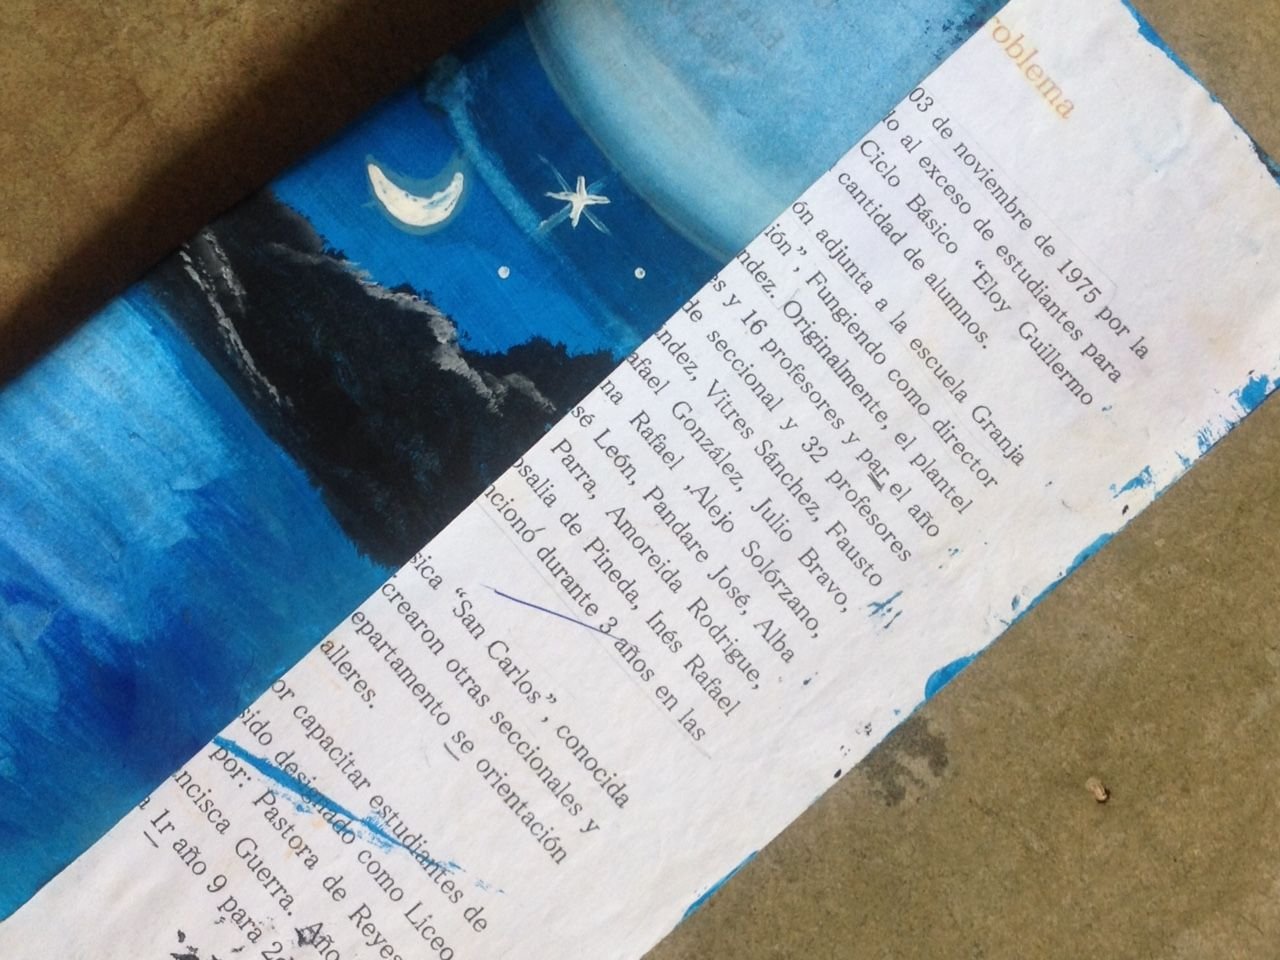 roblema
03 de noviembre de 1975 por la
lo al exceso de estudiantes para
Ciclo Básico “Eloy Guillermo
cantidad de alumnos.
ón adjunta a la escuela Granja
ión”, Fungiendo como director
ndez. Originalmente, el plantel
s y 16 profesores y par el año
de seccional y 32 profesores
ndez, Vitres Sánchez, Fausto
afael González, Julio Bravo,
na Rafael ,Alejo Solórzano,
sé León, Pandare José, Alba
Parra, Amoreida Rodrigue,
osalia de Pineda, Inés Rafael
ncionó durante 3 años en las
sica “San Carlos”, conocida
crearon otras seccionales y
epartamento se orientación
alleres.
or capacitar estudiantes de
sido designado como Liceo
por: Pastora de Reyes
ncisca Guerra. Año
1r año 9 para